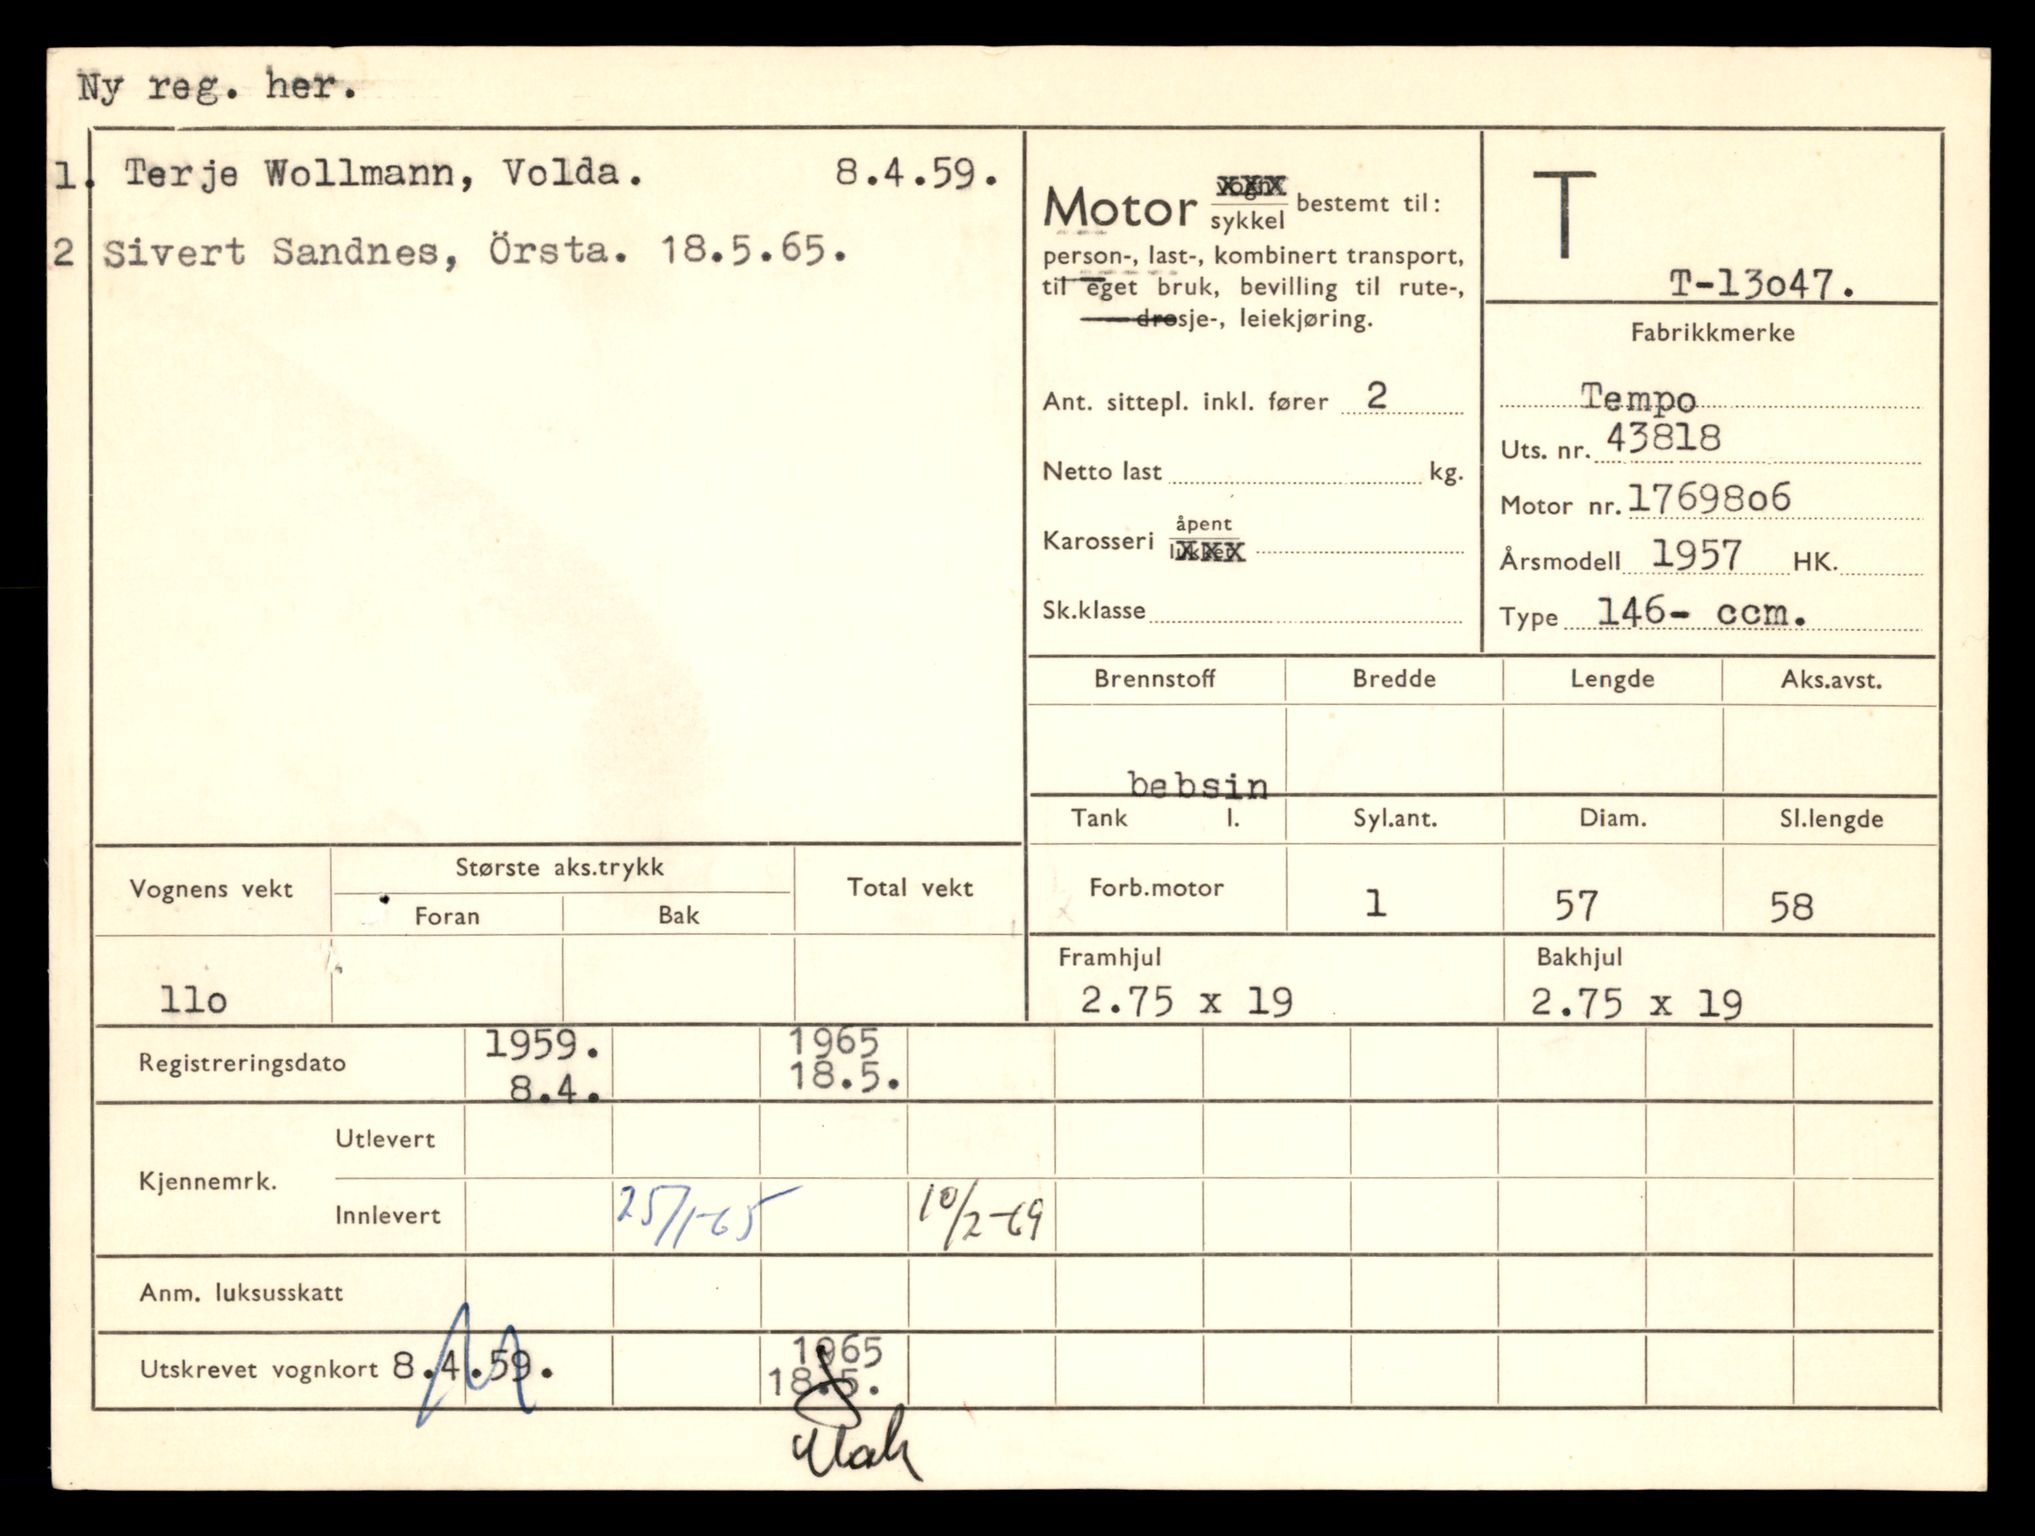 Ny reg. her.
1. Terje Wollmann, Volda. 8.4.59.
2 Sivert Sandnes, Örsta. 18.5.65.
Motor vogn sykkel bestemt til:
person-, last-, kombinert transport,
til eget bruk, bevilling til rute-,
drosje-, leiekjøring.
Ant. sittepl. inkl. fører 2
Netto last kg.
Karosseri åpent lukket
Sk.klasse
T
T-13o47.
Fabrikkmerke
Tempo
Uts. nr. 43818
Motor nr. 17698o6
Årsmodell 1957 HK.
Type 146- ccm.
Brennstoff Bredde Lengde Aks.avst.
bebsin
Tank l. Syl.ant. Diam. Sl.lengde
Forb.motor 1 57 58
Framhjul Bakhjul
2.75 x 19 2.75 x 19
Vognens vekt Største aks.trykk Total vekt
Foran Bak
llo
Registreringsdato 1959. 1965
8.4. 18.5.
Kjennemrk. Utlevert
Innlevert 25/1-65 10/2-69
Anm. luksusskatt
Utskrevet vognkort 8.4.59. 1965
18.5.